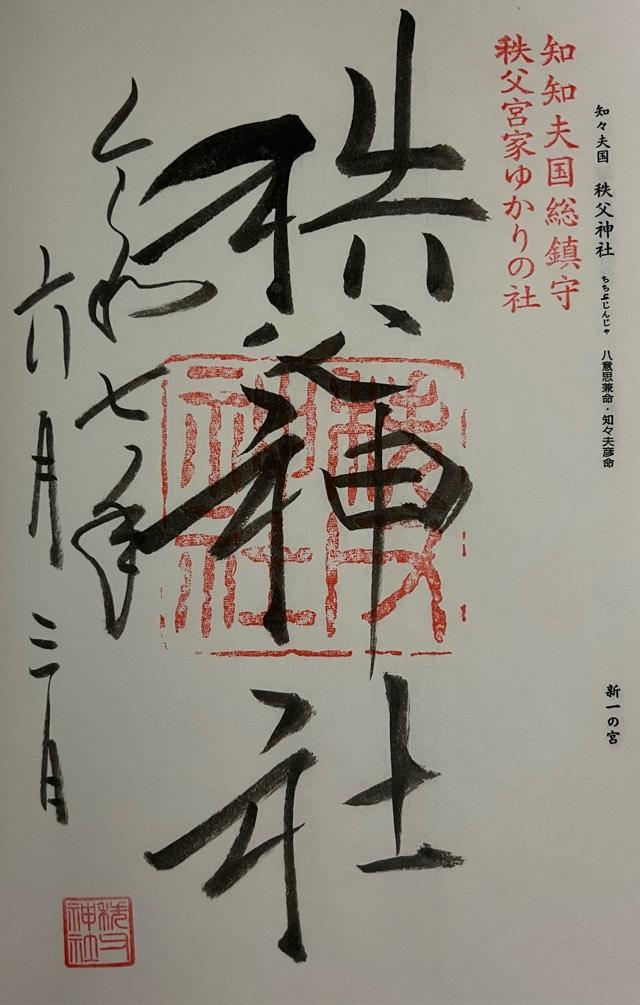 知々夫国 秩父神社 ちちぶじんじゃ 八意思兼命・知々夫彦命 新一の宮
知知夫国総鎮守
秩父宮家ゆかりの社
秩父神社
秩父
神社
令和七年
六月三日
秩父
神社